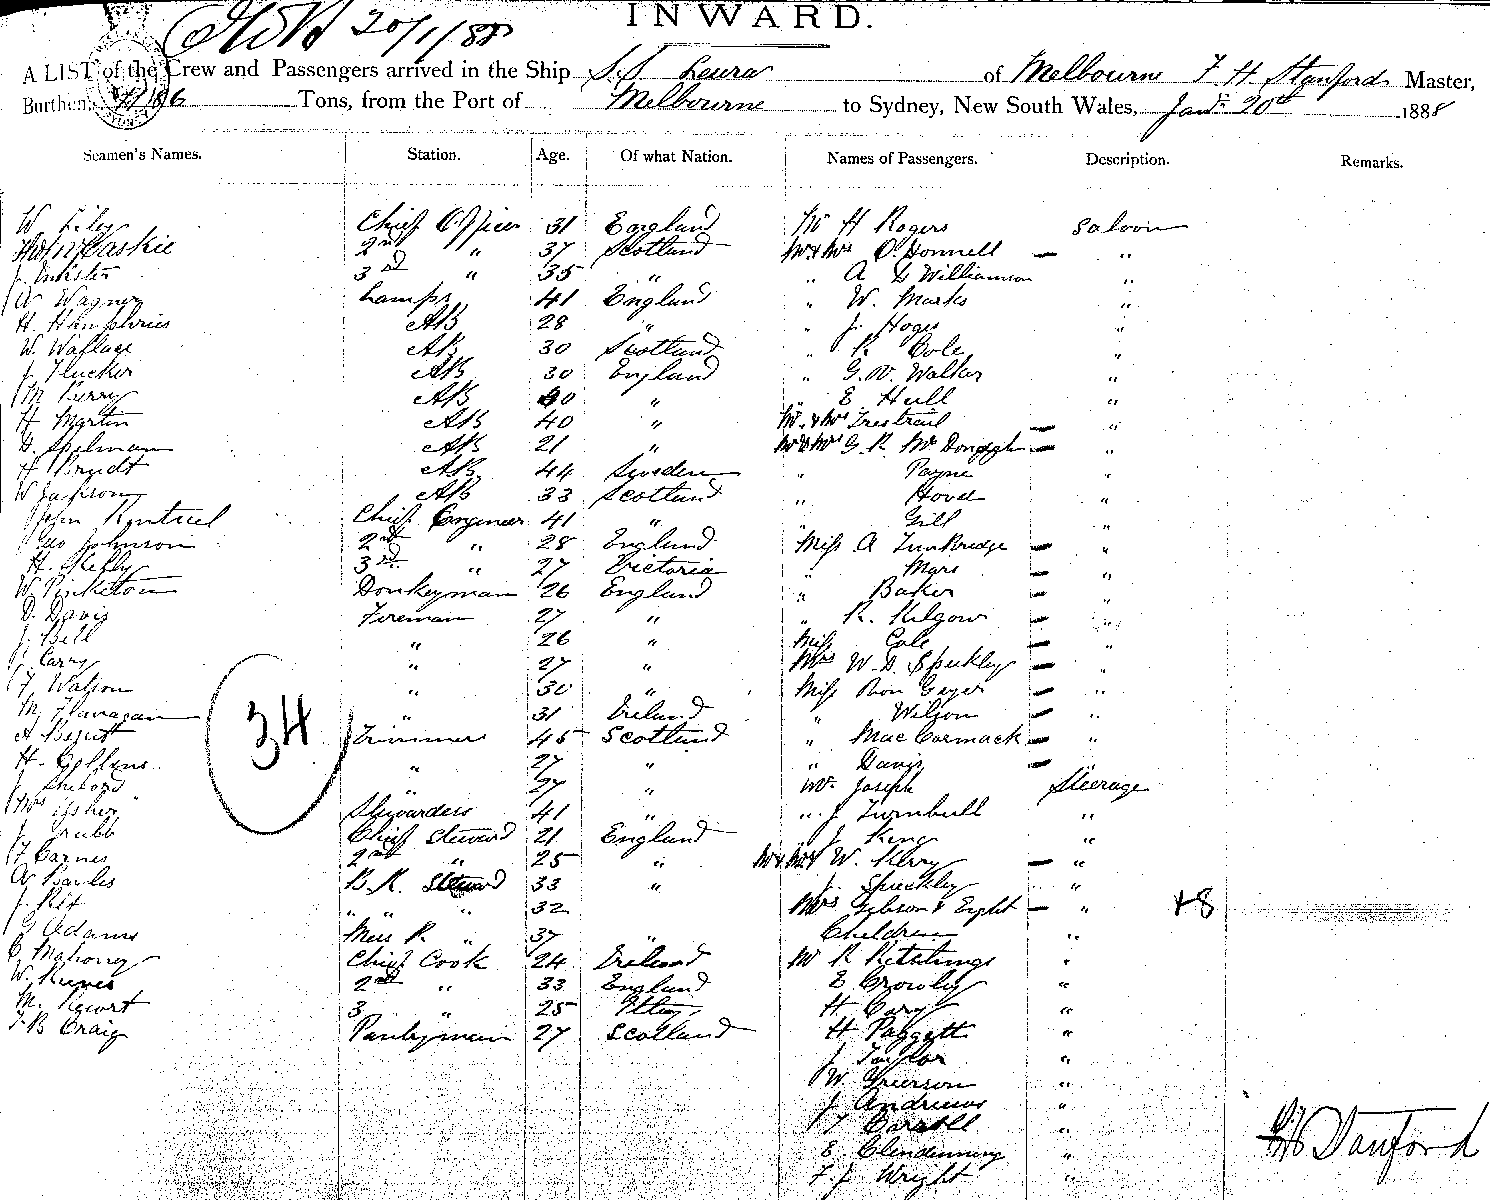 INWARD.
20/1/88
A LIST of the Crew and Passengers arrived in the Ship S.S. Leura of Melbourne F. H. Stanford Master,
Burthen Tons, from the Port of Melbourne to Sydney, New South Wales, Jany 20th 1888
Seamen's Names. Station. Age. Of what Nation. Names of Passengers. Description. Remarks.
Chief Officer 31 England Mr H Rogers Saloon
2nd " 37 Scotland Mr & Mrs O'Donnell — "
3rd " 35 " " A D Williamson "
W Wagner Lamps 41 England " W. Marks "
H. Humphries AB 28 " " J. "
W. Wallace AB 30 Scotland " R Cole "
J. Flucker AB 30 England " G. W. Walker "
M Perry AB " " E Hull "
H Martin AB 40 " Mr & Mrs Trestrail — "
Spelman AB 21 " Mr & Mrs G. R. McDonogh — "
AB 44 Sweden " Payne "
W Jackson AB 33 Scotland " Hood "
John Chief Engineer 41 " " Gill "
Geo Johnson 2nd " 28 England Miss A Tunbridge — "
H. 3rd " 27 Victoria " Mars — "
W. Pinkston Donkeyman 26 England " Baker — "
D. Davis Fireman 27 " " R. Kilgour — "
J. Bell " 26 " Miss Cole — "
J. Carry " 27 " Mrs W. D. Speckley — "
F Watson " 30 " Miss Von Geyer — "
M. Flanagan " 31 Ireland " Wilson — "
34
A Trimmer 45 Scotland " Mac Cormack — "
H. Collins " 27 " " Davis — "
J " 27 " Mr. Joseph Steerage
Mrs Usher Stewardess 41 " " J Turnbull "
J. Chief Steward 21 England J King "
F Carnes 2nd " 25 " Mr & Mrs W. Kerry — "
W B.R. Steward 33 " J. Speckley "
J. " " " 32 Mrs Gibson & Eight — " +8
G Adams Mess R. " 37 " Children "
C. Mahoney Chief Cook 24 Ireland Mr R Ketchings "
W. 2nd " 33 England E Crowly "
M. 3 " 25 Italy H Cary "
F. B Craig Pantryman 27 Scotland H Paggett "
J Taylor "
W Grierson "
J Andrews "
"
E Clendinning "
F. J Wright "
F H Stanford